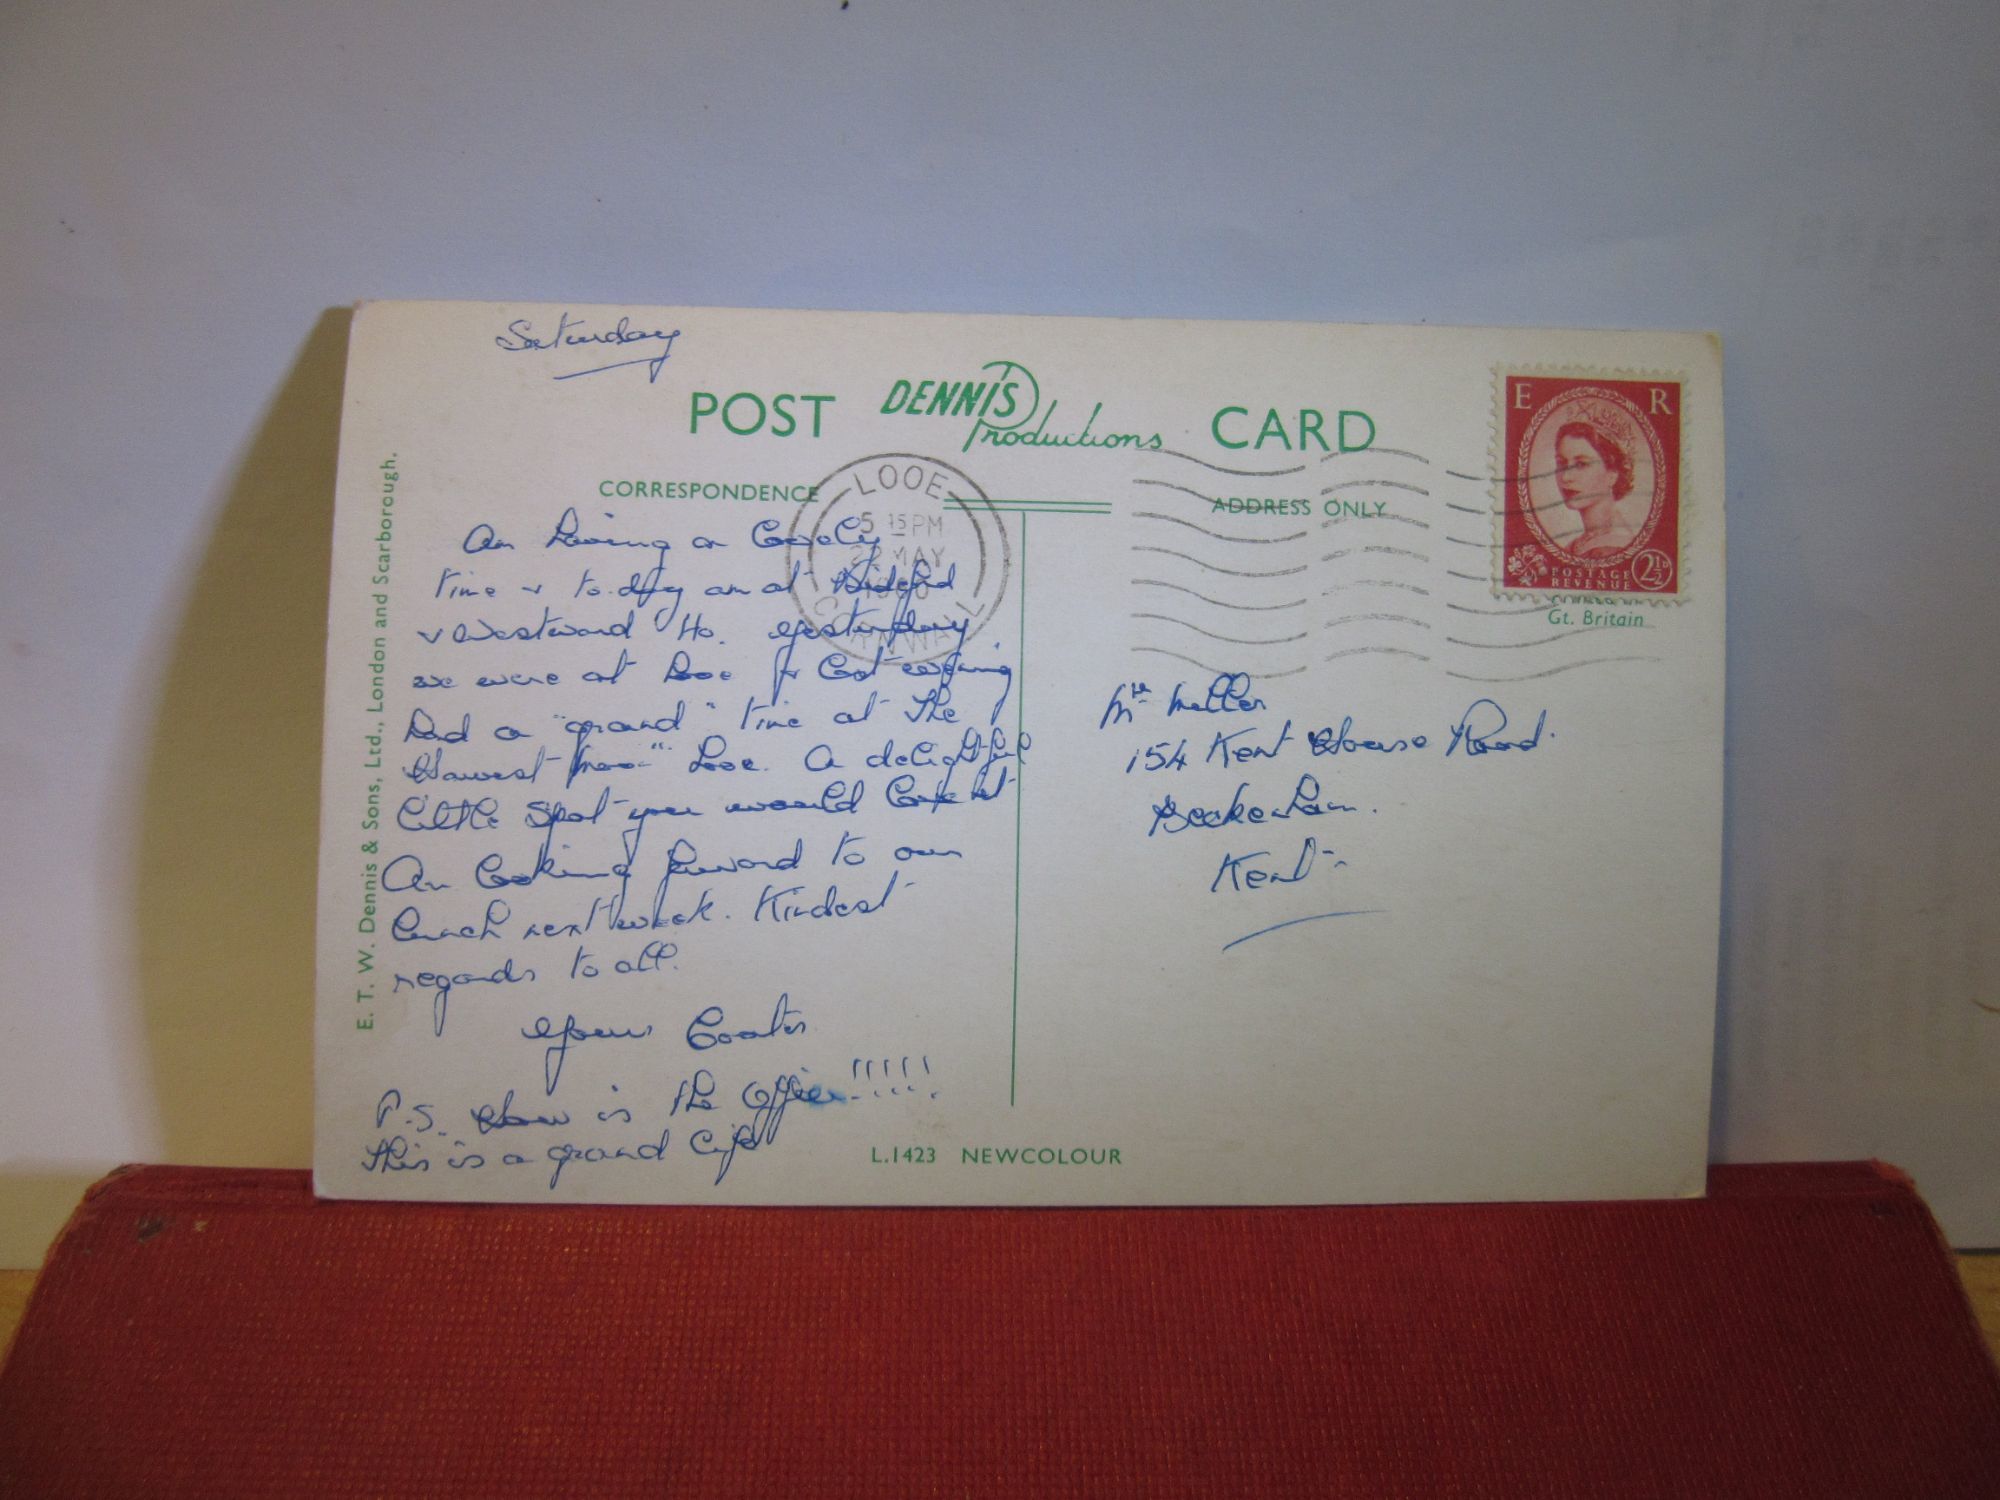 Saturday
POST DENNIS Productions CARD
CORRESPONDENCE
ADDRESS ONLY
LOOE
5 15 PM
MAY
CORNWALL
E R
POSTAGE
REVENUE
2½D
Gt. Britain
E. T. W. Dennis & Sons, Ltd., London and Scarborough.
Am having a lovely
time & to-day am at Bideford
& Westward Ho. Yesterday
we were at Looe & last evening
had a "grand" time at the
Harvest Looe. A delightful
little spot you would love it
Am looking forward to our
lunch next week. Kindest
regards to all.
Yours
P.S. How is the Office!!!!!
This is a grand life
Mr Meller
154 Kent House Road.
Beckenham.
Kent
L.1423 NEWCOLOUR